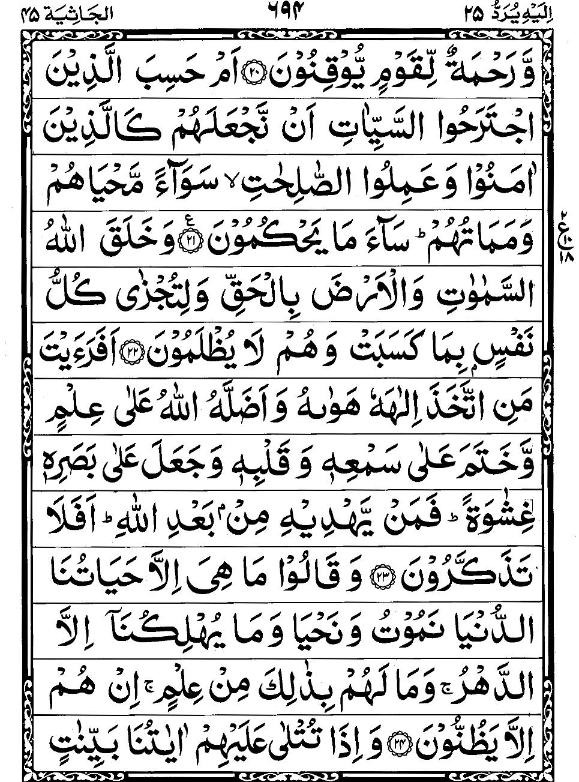 اِلَیْهِ یُرَدُّ ۲۵
۶۹۴
الجَاثِیَة ۴۵
وَّ رَحْمَةٌ لِّقَوْمٍ یُّوْقِنُوْنَ ۲۰ اَمْ حَسِبَ الَّذِیْنَ
اجْتَرَحُوا السَّیِّاٰتِ اَنْ نَّجْعَلَهُمْ كَالَّذِیْنَ
اٰمَنُوْا وَ عَمِلُوا الصّٰلِحٰتِ ۙ سَوَآءً مَّحْیَاهُمْ
وَ مَمَاتُهُمْ ؕ سَآءَ مَا یَحْكُمُوْنَ ۲۱ ع وَ خَلَقَ اللّٰهُ
۲ ع ۱۰ ۱۸
السَّمٰوٰتِ وَ الْاَرْضَ بِالْحَقِّ وَ لِتُجْزٰی كُلُّ
نَفْسٍۭ بِمَا كَسَبَتْ وَ هُمْ لَا یُظْلَمُوْنَ ۲۲ اَفَرَءَیْتَ
مَنِ اتَّخَذَ اِلٰهَهٗ هَوٰىهُ وَ اَضَلَّهُ اللّٰهُ عَلٰی عِلْمٍ
وَّ خَتَمَ عَلٰی سَمْعِهٖ وَ قَلْبِهٖ وَ جَعَلَ عَلٰی بَصَرِهٖ
غِشٰوَةً ؕ فَمَنْ یَّهْدِیْهِ مِنْۢ بَعْدِ اللّٰهِ ؕ اَفَلَا
تَذَكَّرُوْنَ ۲۳ وَ قَالُوْا مَا هِیَ اِلَّا حَیَاتُنَا
الدُّنْیَا نَمُوْتُ وَ نَحْیَا وَ مَا یُهْلِكُنَاۤ اِلَّا
الدَّهْرُ ۚ وَ مَا لَهُمْ بِذٰلِكَ مِنْ عِلْمٍ ۚ اِنْ هُمْ
اِلَّا یَظُنُّوْنَ ۲۴ وَ اِذَا تُتْلٰی عَلَیْهِمْ اٰیٰتُنَا بَیِّنٰتٍ